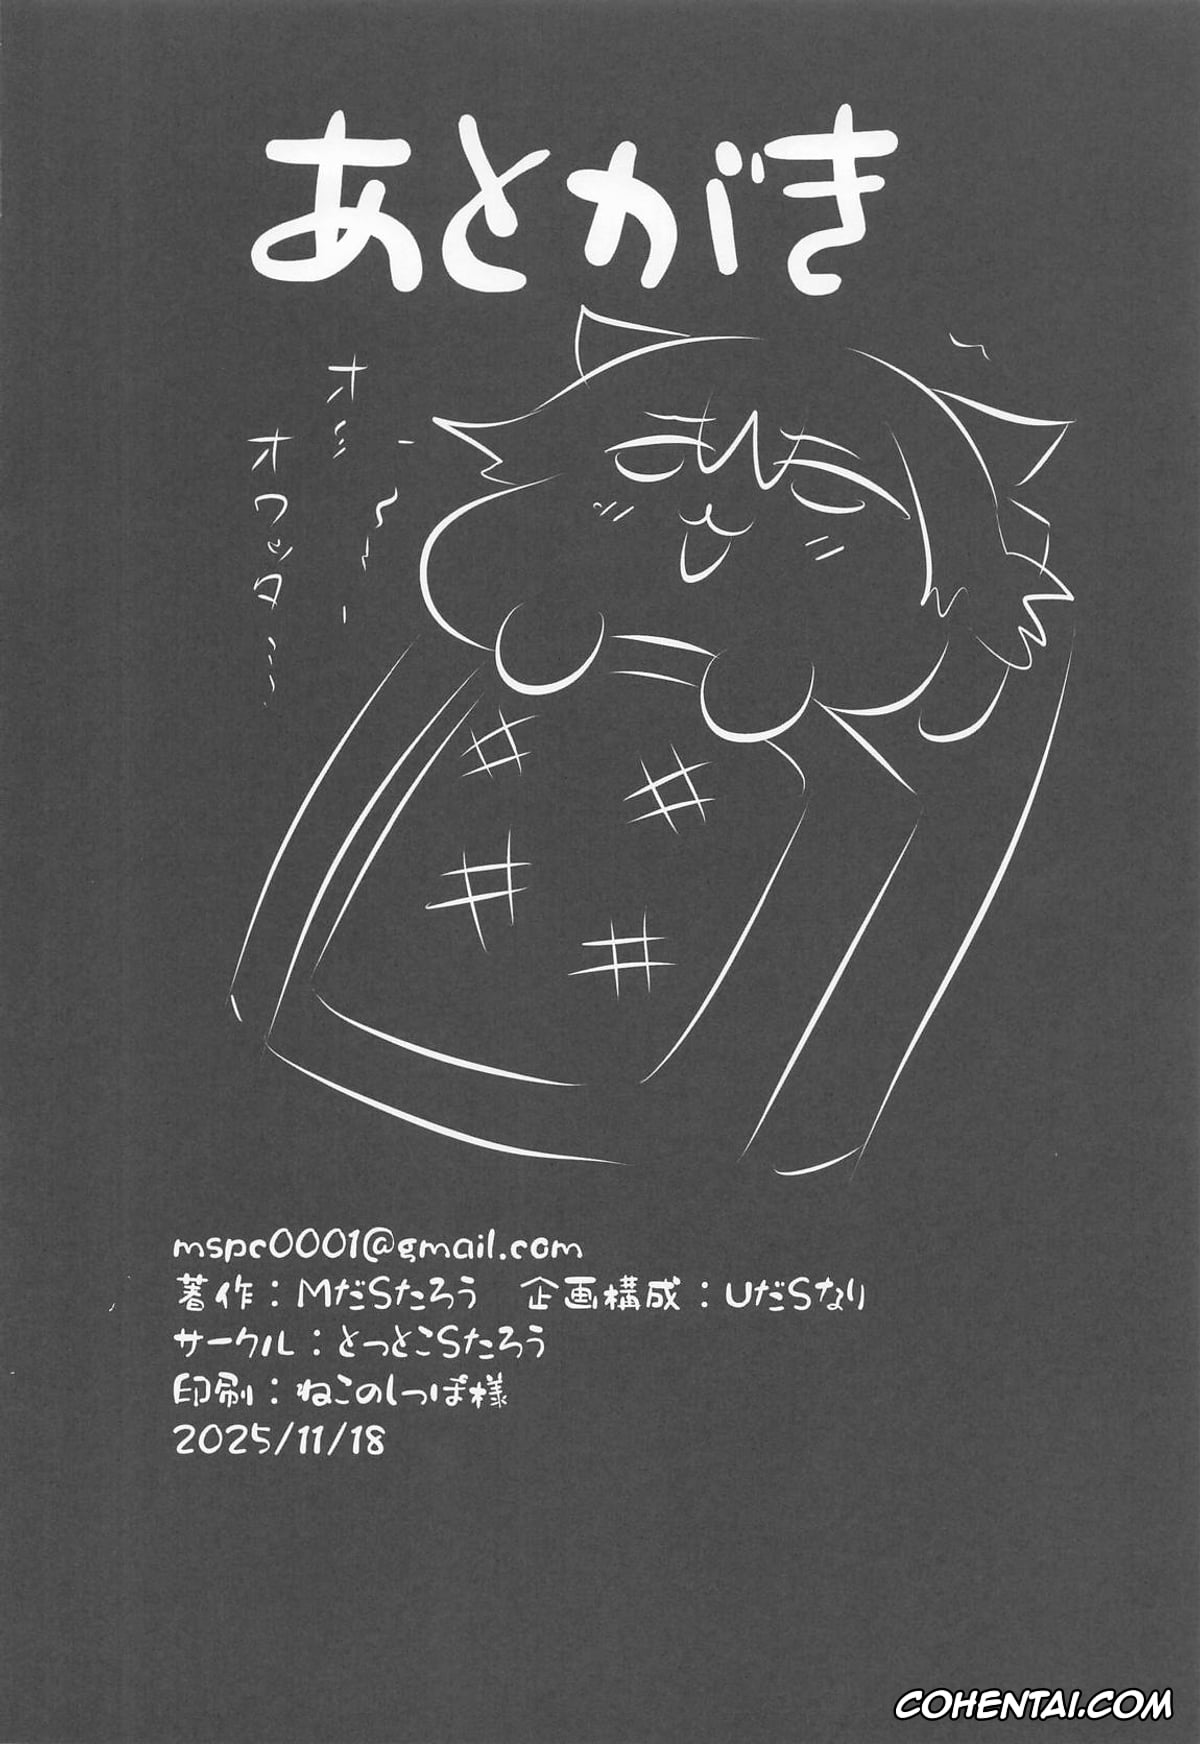 あとがき
オミ
オワッタ…
mspc0001@gmail.com
著作：MだSたろう　企画構成：UだSなり
サークル：とっとこSたろう
印刷：ねこのしっぽ様
2025/11/18
COHENTAI.COM